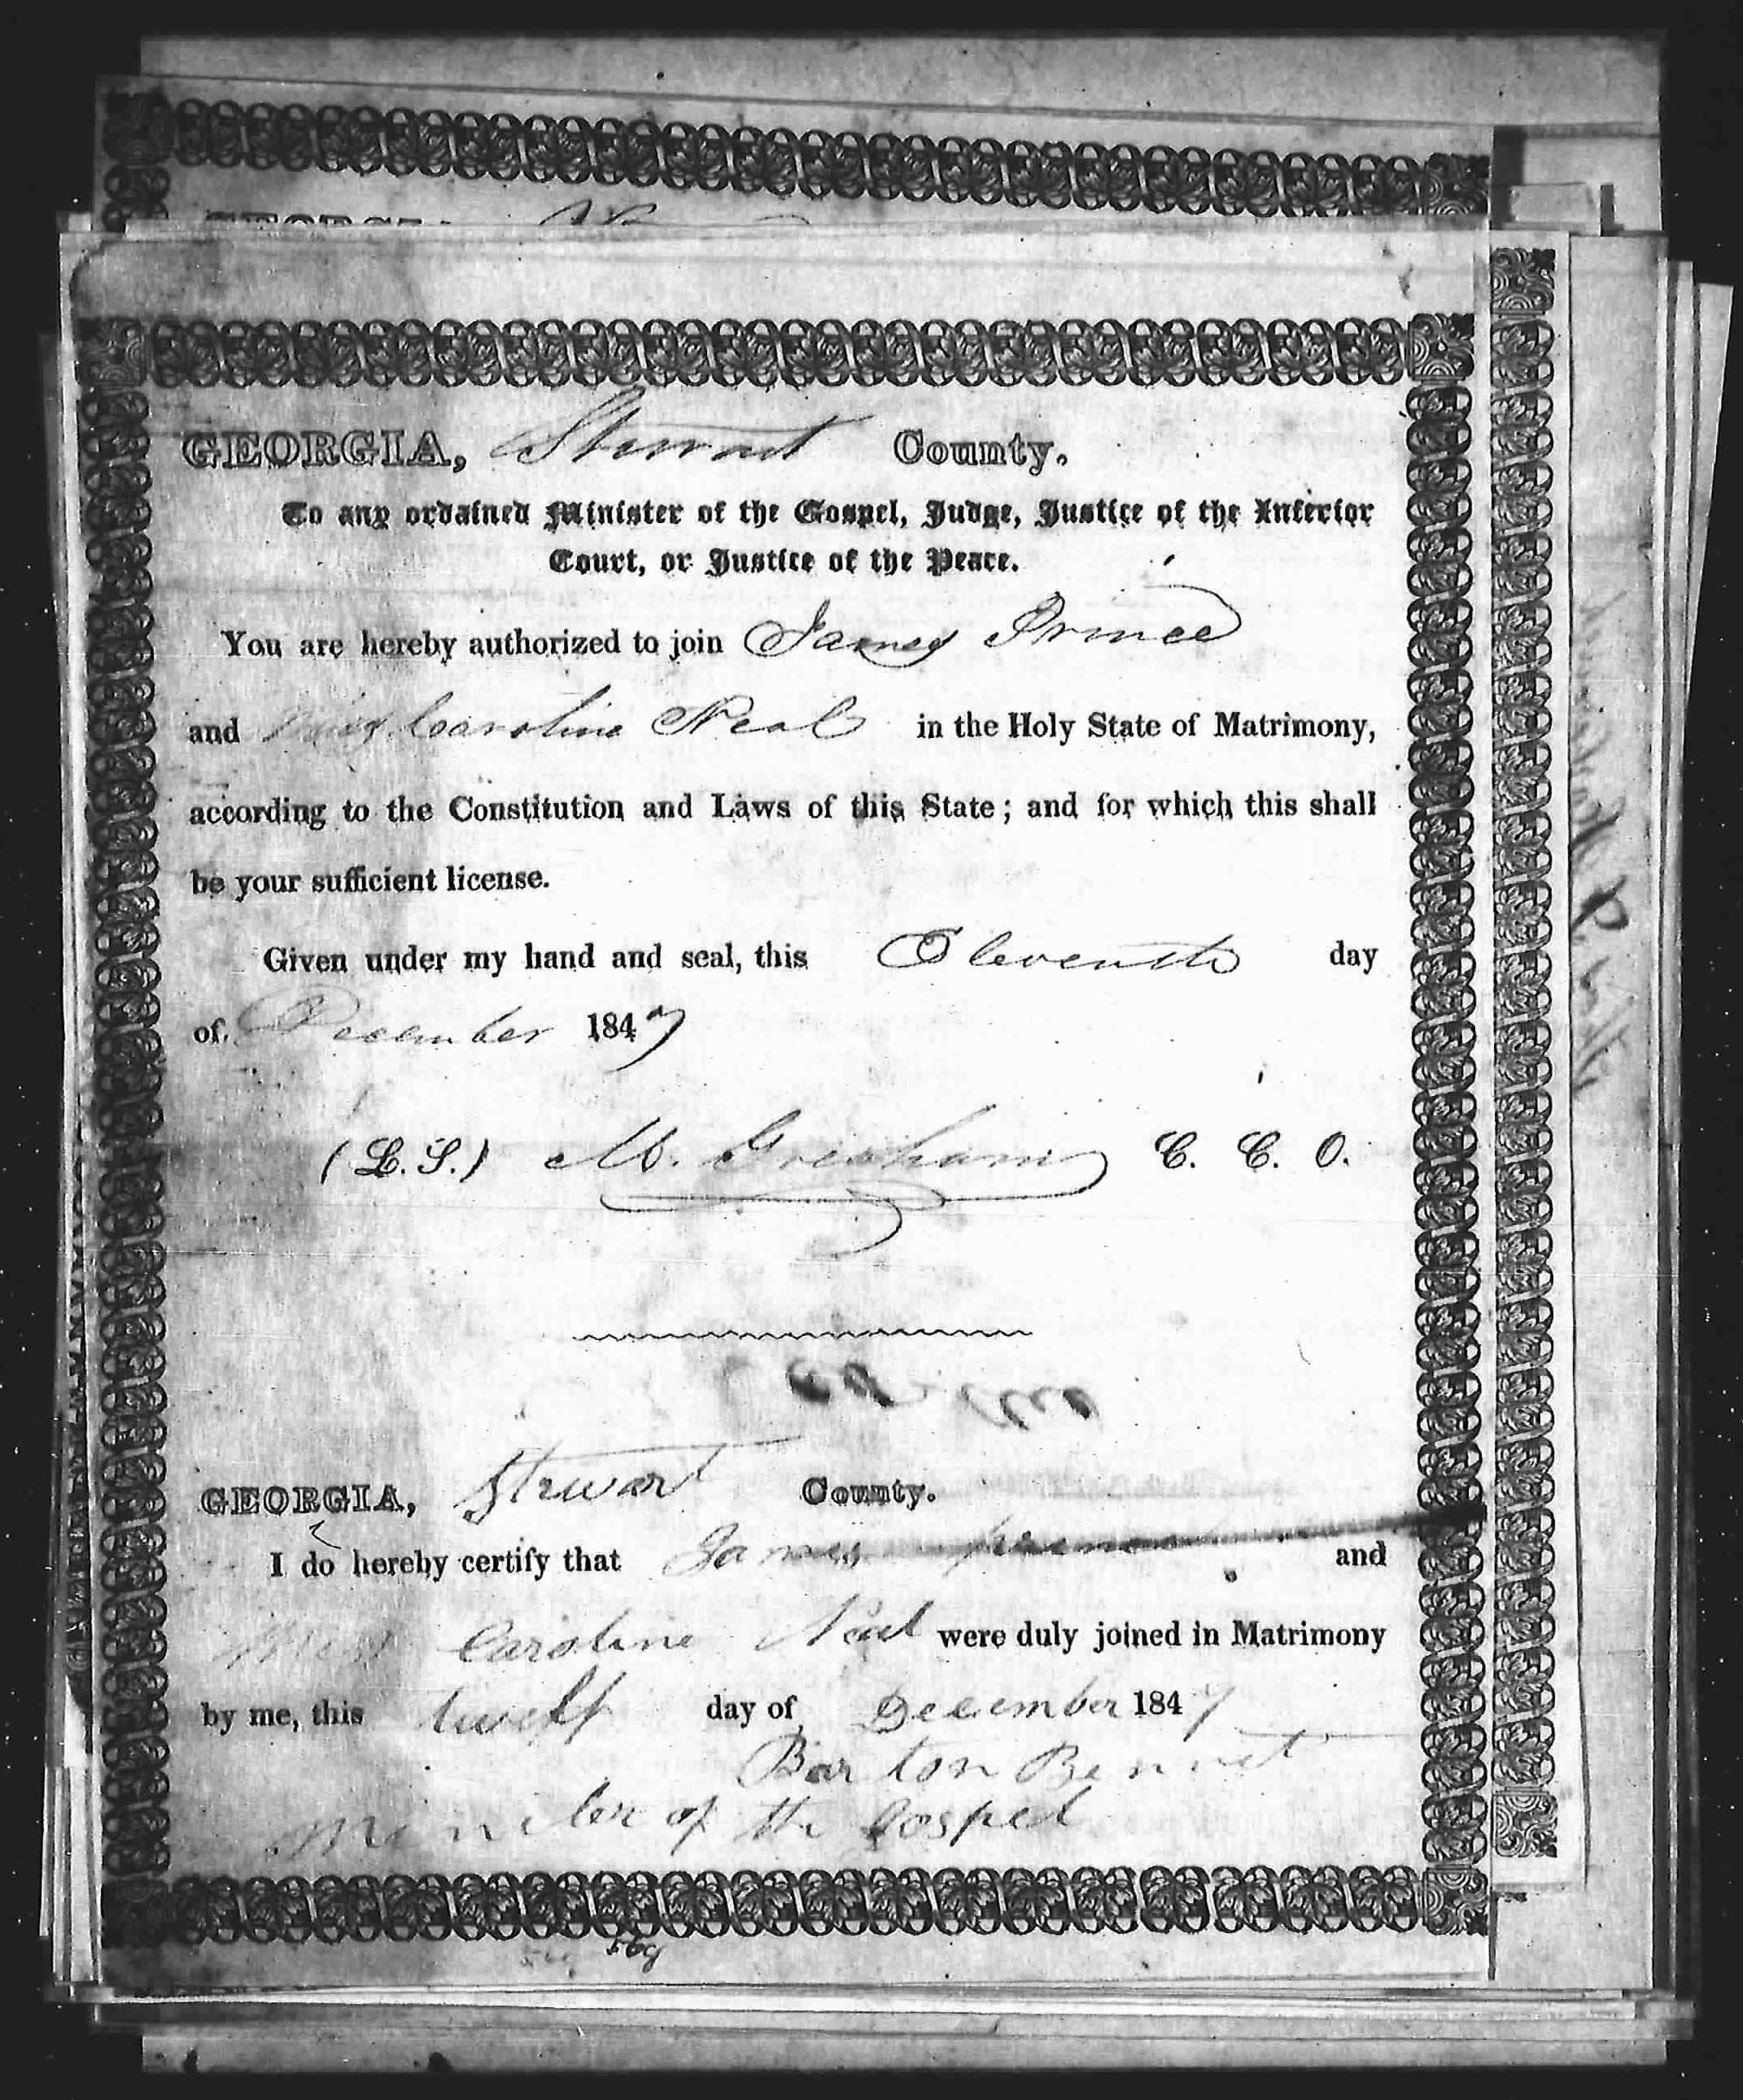 GEORGIA, Stewart County.
To any ordained Minister of the Gospel, Judge, Justice of the Inferior
Court, or Justice of the Peace.
You are hereby authorized to join James Prince
and Miss Caroline Neal in the Holy State of Matrimony,
according to the Constitution and Laws of this State; and for which this shall
be your sufficient license.
Given under my hand and seal, this Eleventh day
of December 1847
(L.S.) M. Gresham C. C. O.
GEORGIA, Stewart County.
I do hereby certify that James and
Miss Caroline Neal were duly joined in Matrimony
by me, this twelf day of December 1847
Barton Bennet
Minister of the Gospel